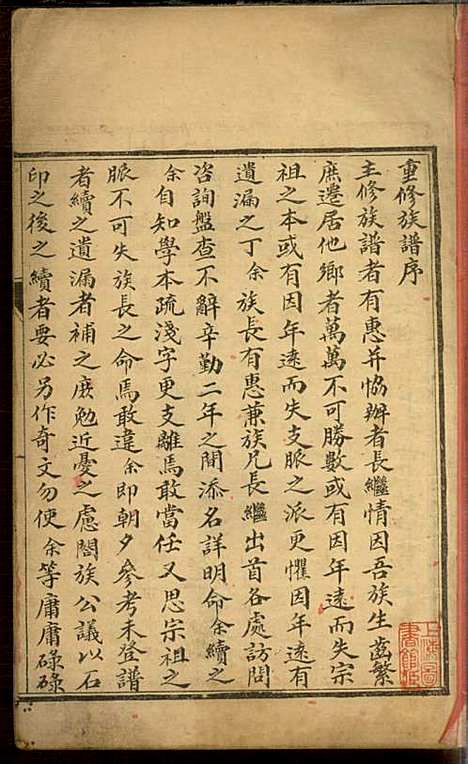 重修族譜序
主修族譜者有惠并恊辦者長繼情因吾族生齒繁
庶遷居他鄉者萬萬不可勝數或有因年遠而失宗
祖之本或有因年遠而失支脈之派更懼因年遠有
遺漏之丁余族長有惠兼族兄長繼出首各處訪問
咨詢盤查不辭辛勤二年之間添名詳明命余續之
余自知學本疏淺字更支離焉敢當任又思宗祖之
脈不可失族長之命焉敢違余即朝夕參考未登譜
者續之遺漏者補之庶勉近憂之慮閤族公議以石
印之後之續者要必另作奇文勿使余等庸庸碌碌